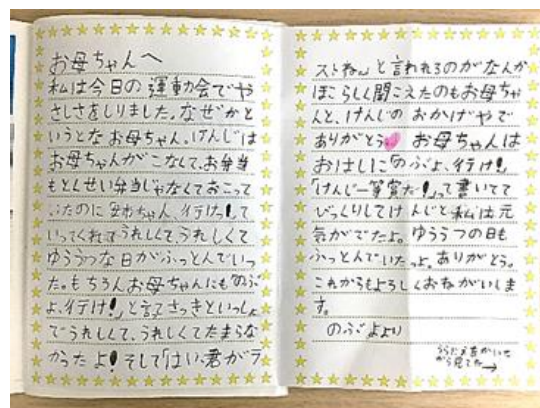 お母ちゃんへ
私は今日の運動会でや
さしさをしりました。なぜかと
いうとなお母ちゃん。けんじは
お母ちゃんがこなくて、お弁当
もとくせい弁当じゃなくておこって
いたのに 姉ちゃん、行けっ!て
いってくれてうれしくて、うれしくて
ゆううつな日がふっとんでいっ
た。もちろんお母ちゃんにも「のぶ
よ、行け!」と言 さっきといっしょ
でうれしくて、うれしくてたまらな
かったよ!そして「はい、君がラ
ストね。」と言われるのがなんか
ほこらしく聞こえたのもお母ちゃ
んと、けんじの おかげやで
ありがとう お母ちゃんは
おはしに「のぶよ、行け!」
「けんじ一等賞だ!」って書いてて
びっくりしてけんじと私は元
気がでたよ。ゆううつの日も
ふっとんでいたっよ。ありがとう。
これからもよろしくおねがいしま
す。
のぶよより
うらに を かいた
から見てね→